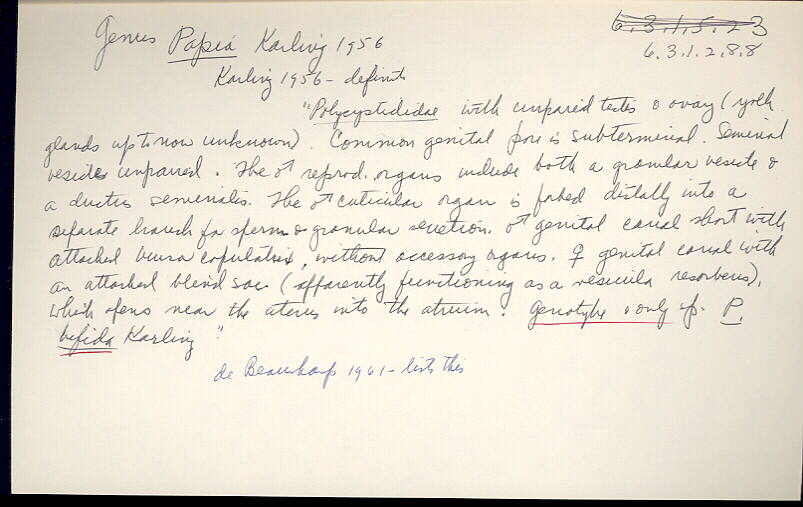 Genus Papia Karling 1956
6.3.1.5.23
6.3.1.2.8.8
Karling 1956 - definite
"Polycystididae with unpaired testis & ovary (yolk
glands up to now unknown). Common genital pore is subterminal. Seminal
vesicle unpaired. The ♂ reprod. organs include both a granular vesicle &
a ductus seminalis. The ♂ cuticular organ is forked distally into a
separate branch for sperm & granular secretion. ♂ genital canal short with
attached bursa copulatrix, without accessory organs. ♀ genital canal with
an attached blind sac (apparently functioning as a vesicula resorbens),
which opens near the uterus into the atrium. Genotype & only sp. P.
bifida Karling"
de Beauchamp 1961 - lists this